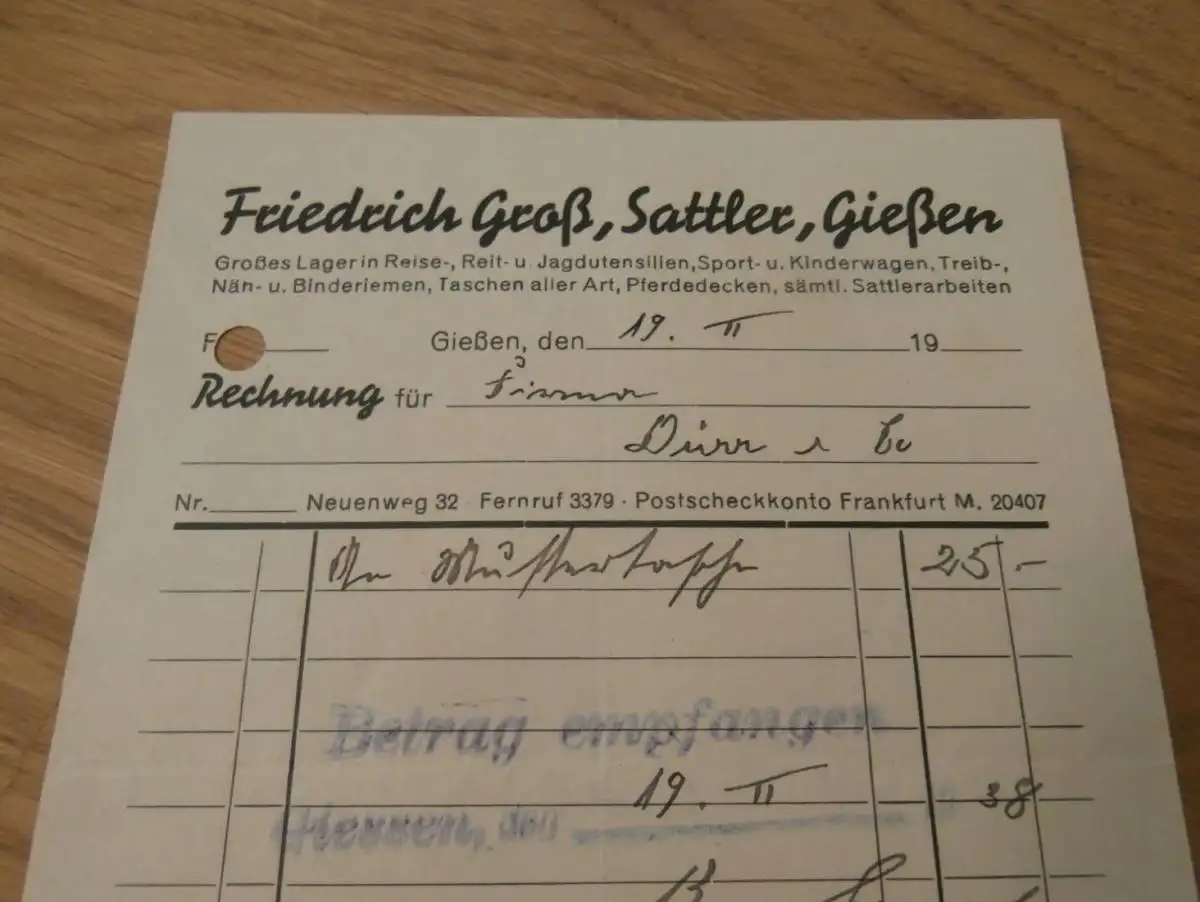 Friedrich Groß, Sattler, Gießen
Großes Lager in Reise-, Reit- u. Jagdutensilien, Sport- u. Kinderwagen, Treib-,
Näh- u. Binderiemen, Taschen aller Art, Pferdedecken, sämtl. Sattlerarbeiten
F Gießen, den 19. II 19
Rechnung für Firma
Dürr & Co
Nr. Neuenweg 32 Fernruf 3379 · Postscheckkonto Frankfurt M. 20407
Mustertasche 25 -
Betrag empfangen
19. II 38
den